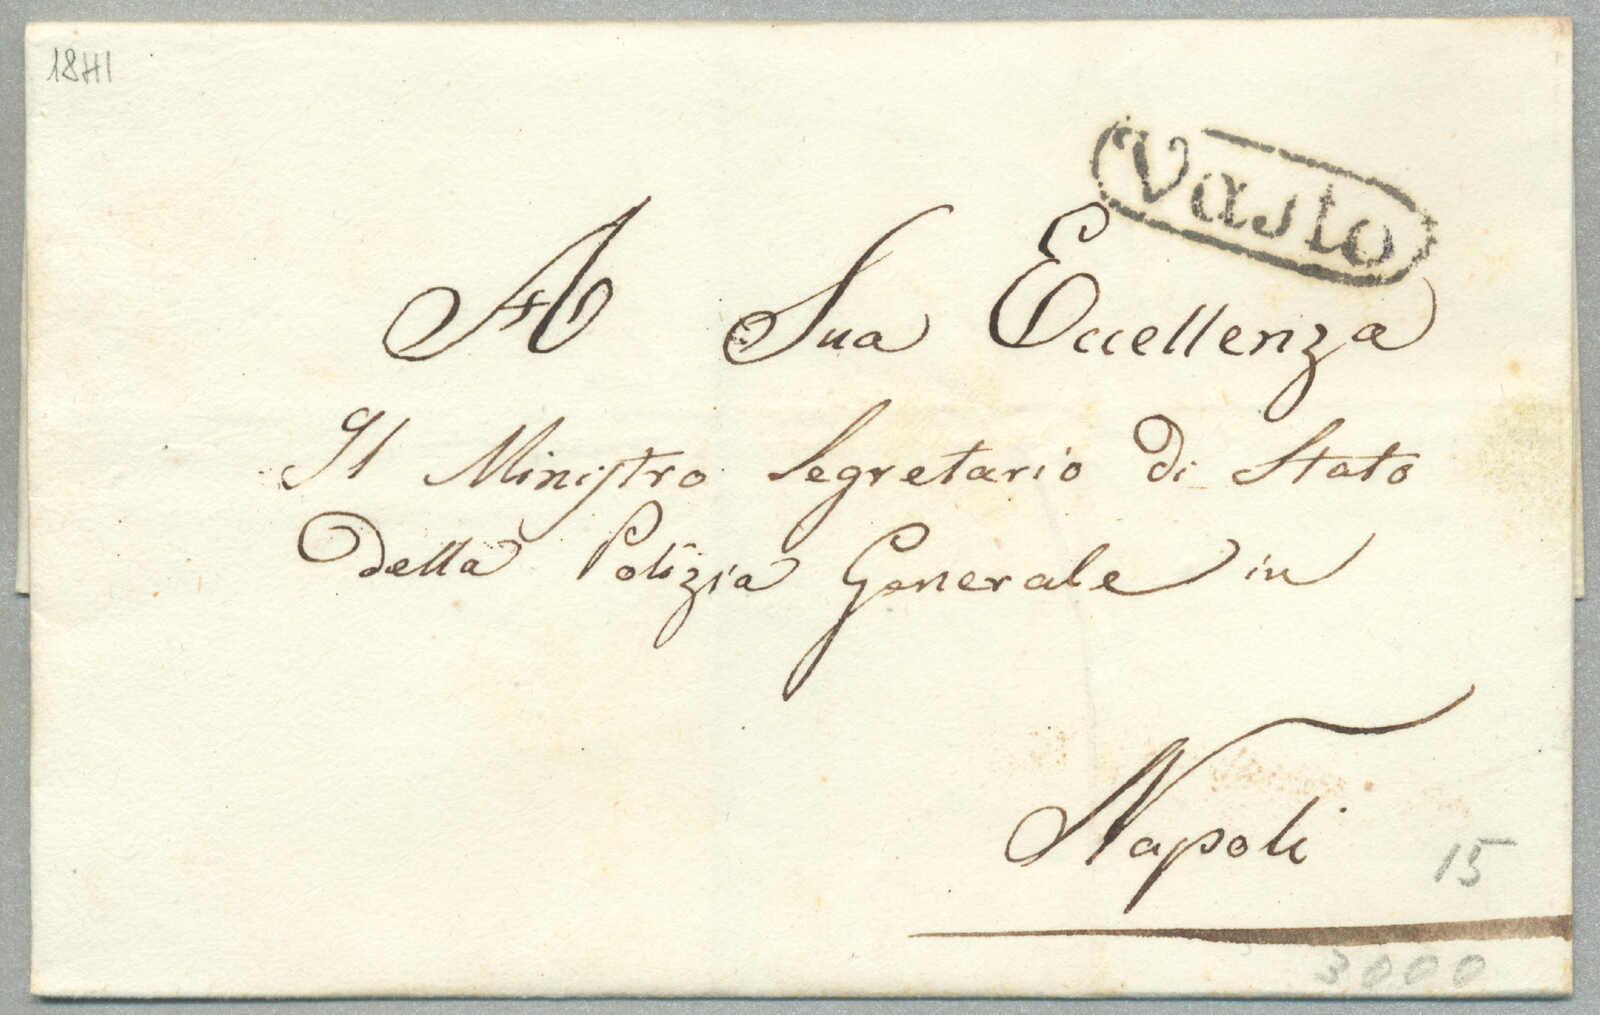 1841
Vasto
A Sua Eccellenza
Il Ministro Segretario di Stato
Della Polizia Generale in
Napoli
15
3000